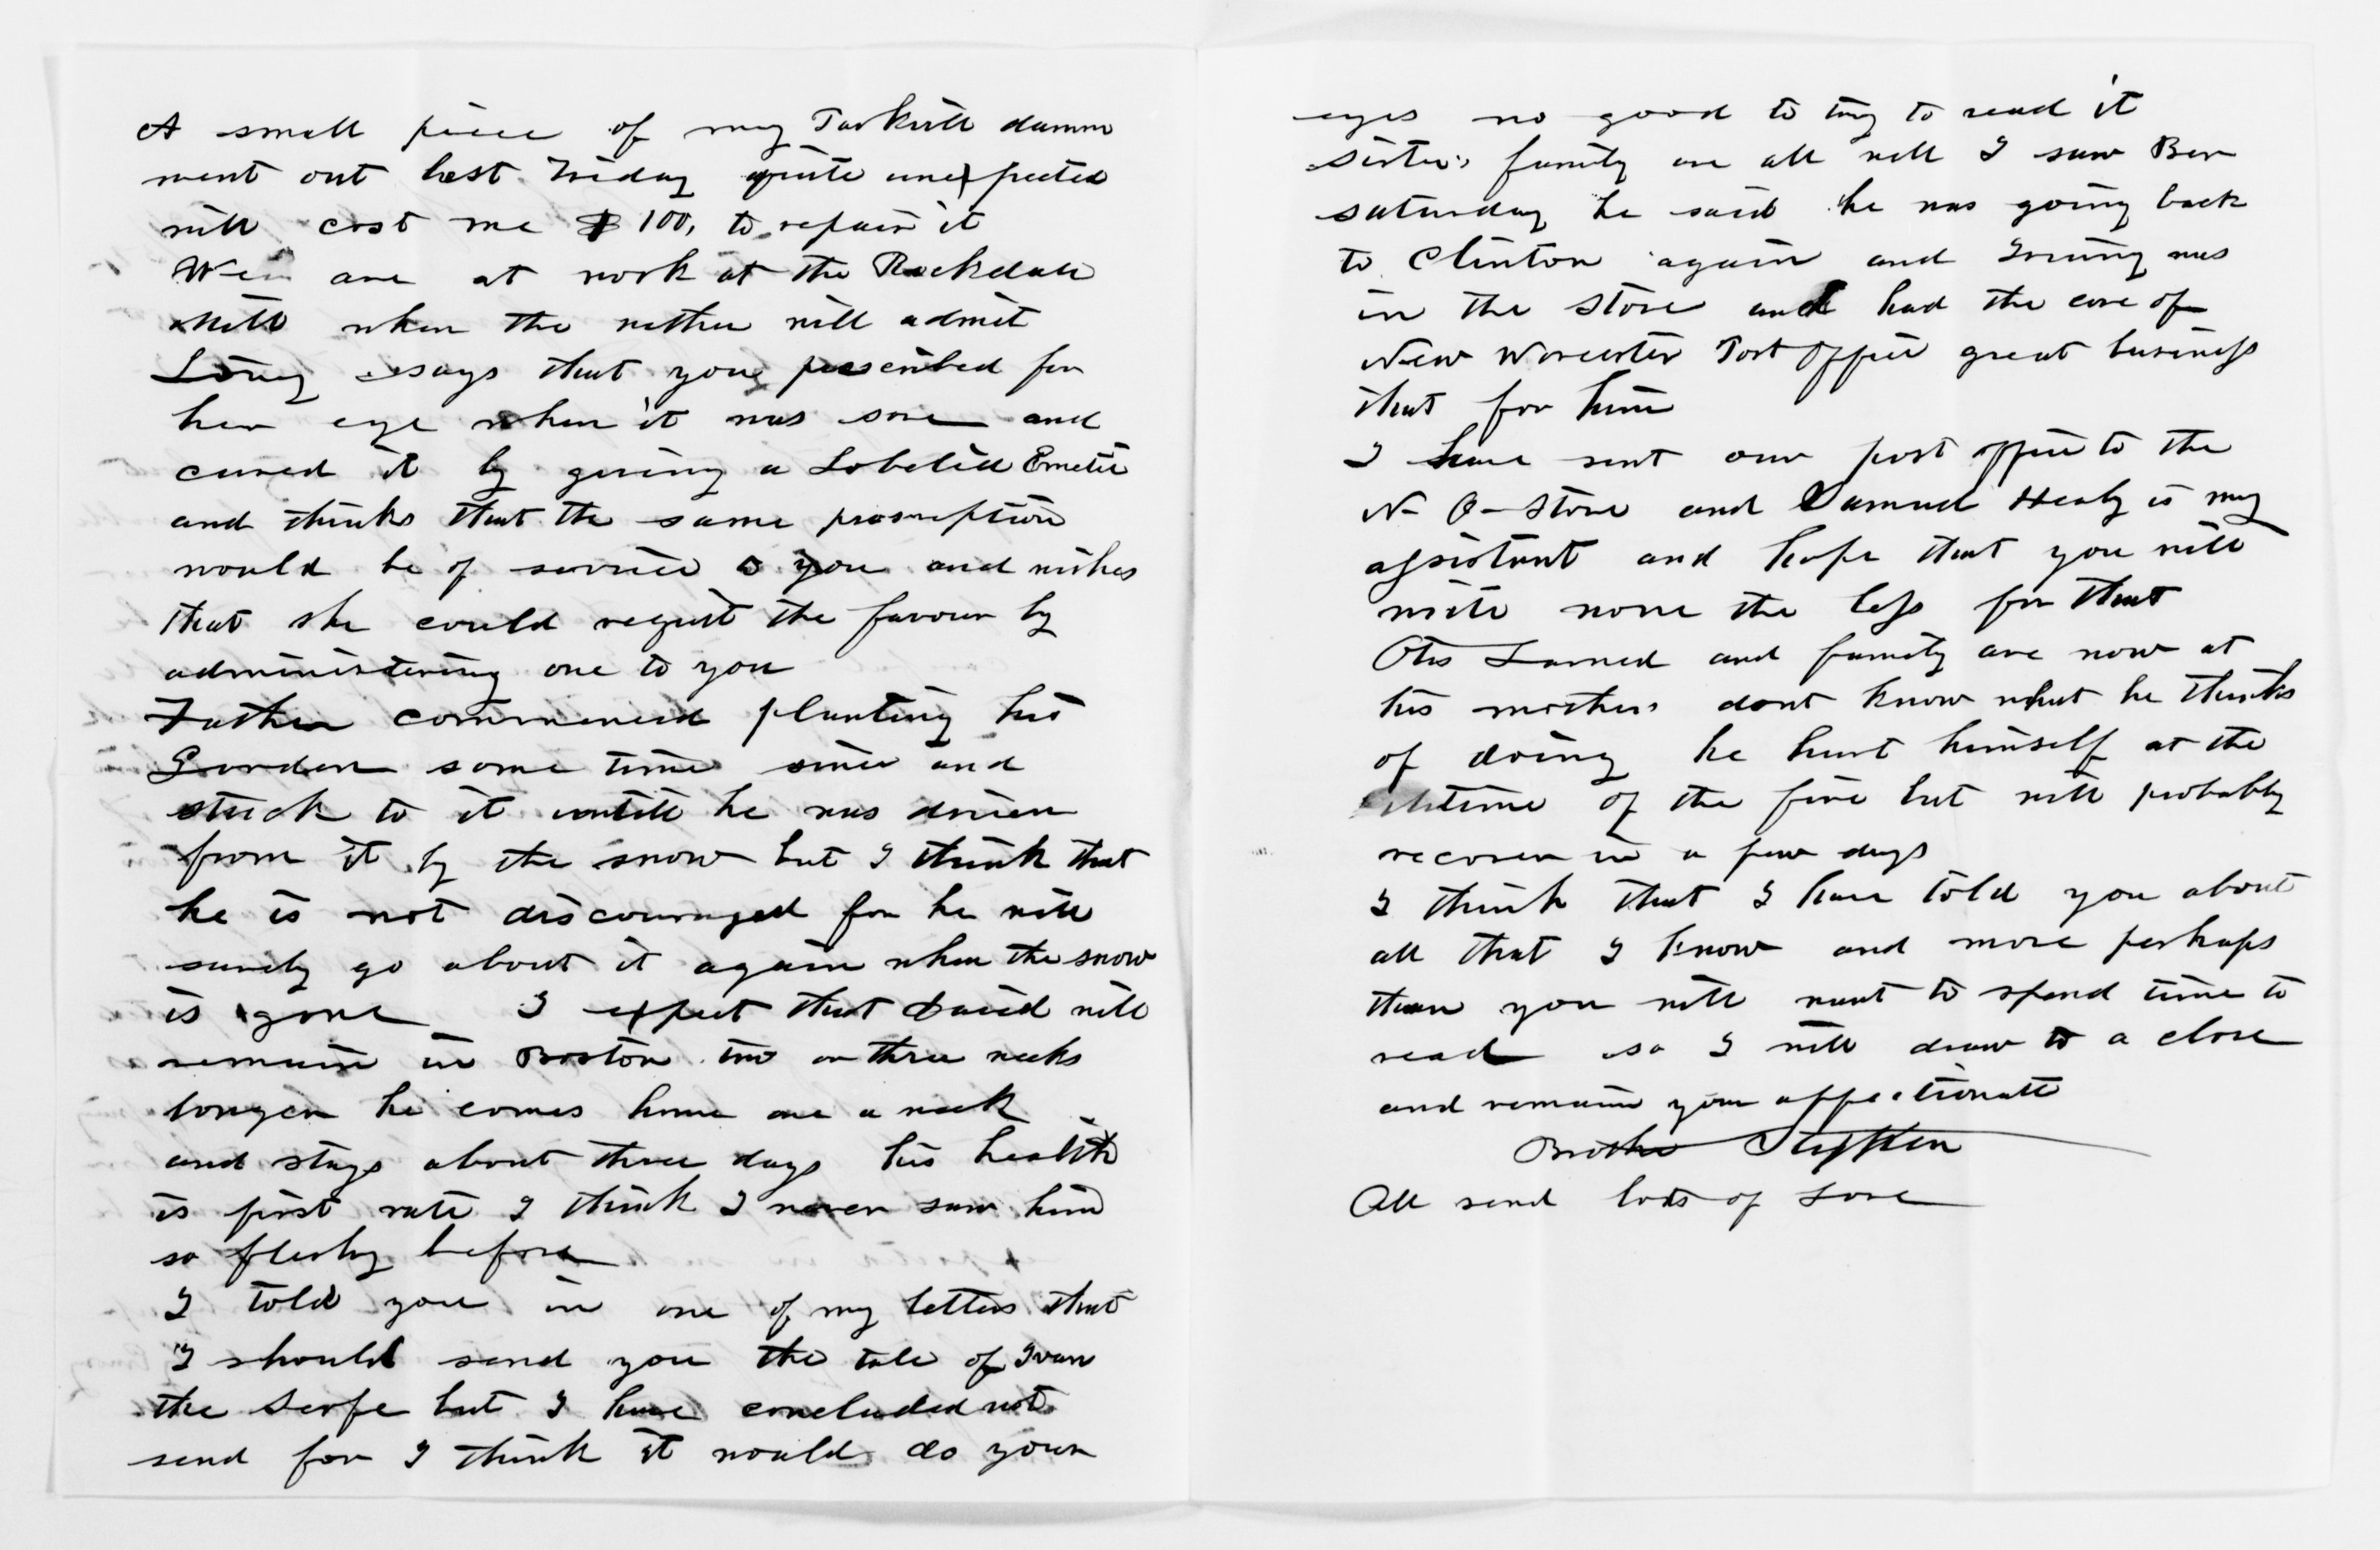 A small piece of my Tarkiln damm
went out last Friday quite unexpected
will cost me $100, to repair it
We are at work at the Rockdale
Mill when the wether will admit
says that you prescribed for
her eye when it was sore and
cured it by giving a Lobelia Emetic
and thinks that the same prescription
would be of service to you and wishes
that she could requit the favour by
administering one to you
Father commenced planting his
Garden some time since and
stuck to it untill he was driven
from it by the snow but I think that
he is not discouraged for he will
surely go about it again when the snow
is gone I expect that David will
remain in Boston two or three weeks
longer he comes home one a week
and stays about three days his health
is first rate I think I never saw him
so fleshy before
I told you in one of my letters that
I should send you the tale of Ivan
the Serfe but I have concluded not
send for I think it would do your
eyes no good to try to read it
sisters family are all well I saw Ben
saturday he said he was going back
to Clinton again and Irving was
in the store and had the care of
New Worcester Post Office great business
that for him
I have sent our post office to the
N O Store and Samuel Healy is my
assistant and hope that you will
write none the less for that
Otis Larned and family are now at
his mothers dont know what he thinks
of doing he hurt himself at the
time of the fire but will probably
recover in a few days
I think that I have told you about
all that I know and more perhaps
than you will want to spend time to
read so I will draw to a close
and remain your affectionate
Brother Stephen
All send lots of Love